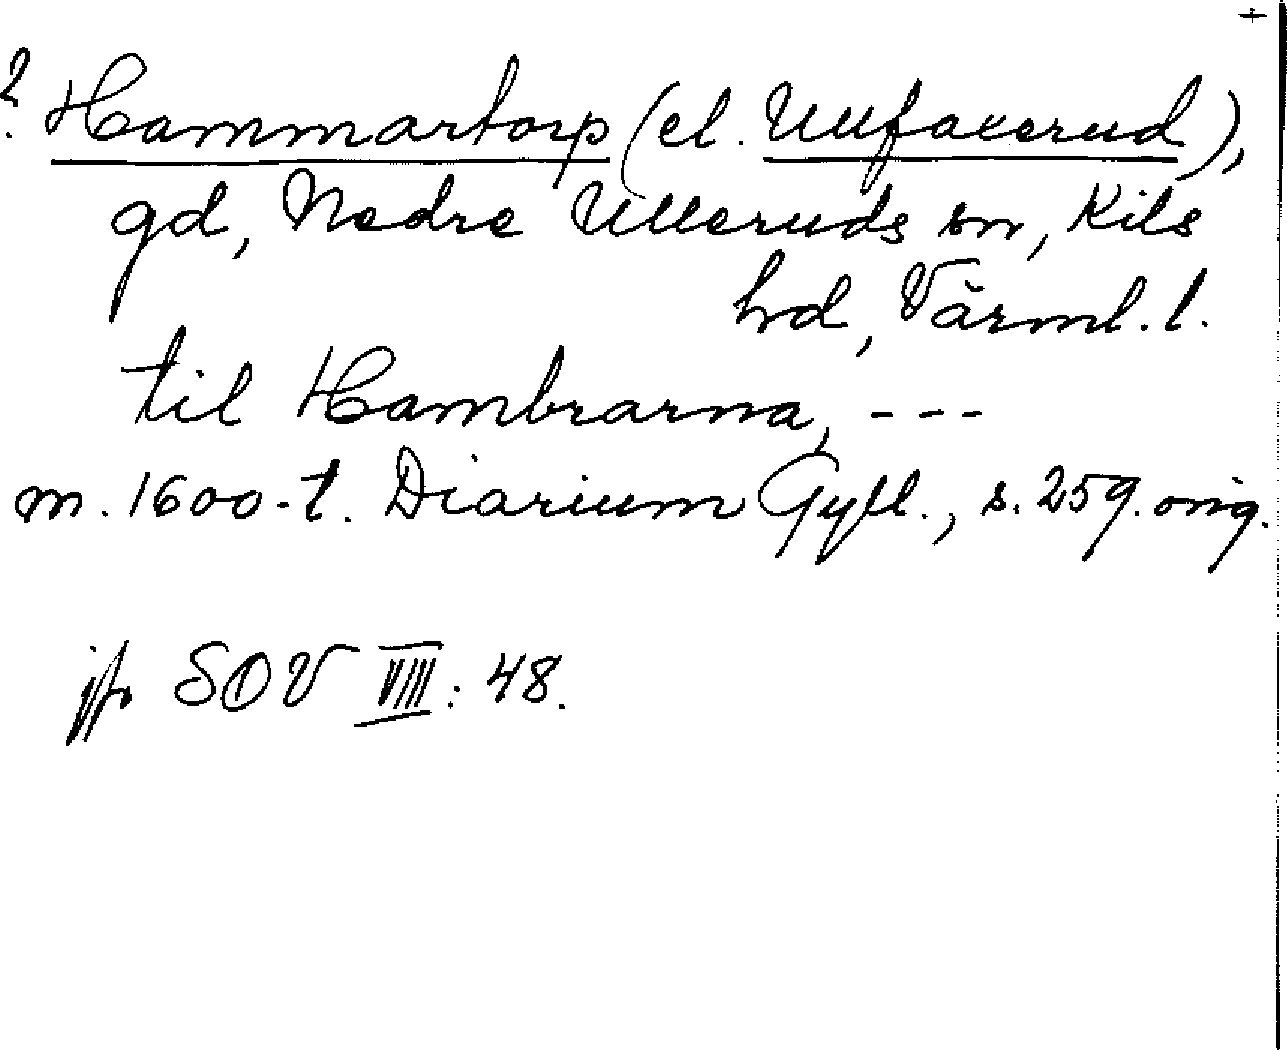 +
? Hammartorp (el. Ulvfaxerud),
gd, Nedre Ulleruds sn, Kils
hd, Värml. l.
til Hambrarna, ---
m. 1600-t. Diarium Gyll., s. 259. orig.
jfr SOV VIII: 48.